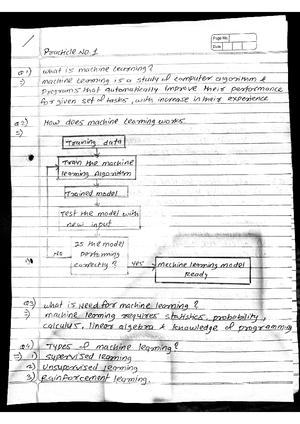 Page No.
Date
Practicle No. 1
Q1) what is machine learning?
=> machine learning is a study of computer algorithm &
programs that automatically improve their performance
for given set of tasks, with increase in their experience
Q2) How does machine learning works
=>
Training data
Train the machine
learning Algorithm
Trained model
Test the model with
new input
Is the model
NO performing YES machine learning model
correctly? Ready
Q3) what is Need for machine learning?
=> machine learning requires statistics, probability,
calculus, linear algebra & knowledge of programming
Q4) Types of machine learning?
=> 1) supervised learning
2) Unsupervised learning
3) Rainforcement learning.